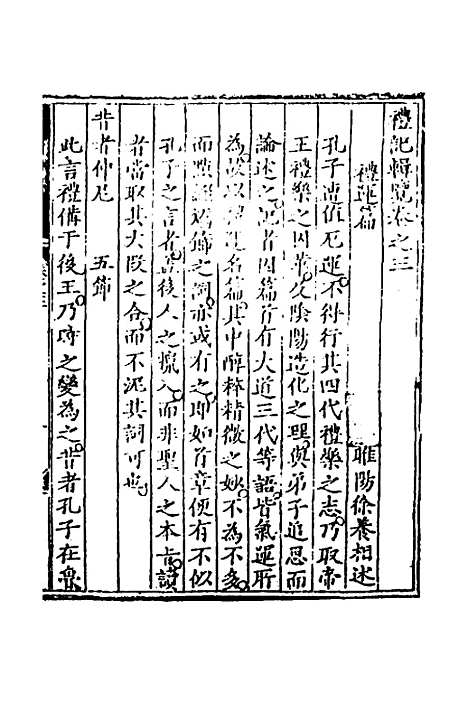 禮記輯覽卷之三
禮運篇
睢陽徐養相述
孔子遭值厄運不得行其四代禮樂之志乃取帝
王禮樂之因革及陰陽造化之理與弟子追思而
論述之記者因篇首有大道三代等語皆氣運所
為故以禮運名篇其中醇粹精微之妙不為不多
而點綴過飾之詞亦或有之即如首章便有不似
孔子之言者蓋後人之攙入而非聖人之本旨讀
者當取其大段之合而不泥其詞可也
昔者仲尼 五節
此言禮備于後王乃時之變為之昔者孔子在魯